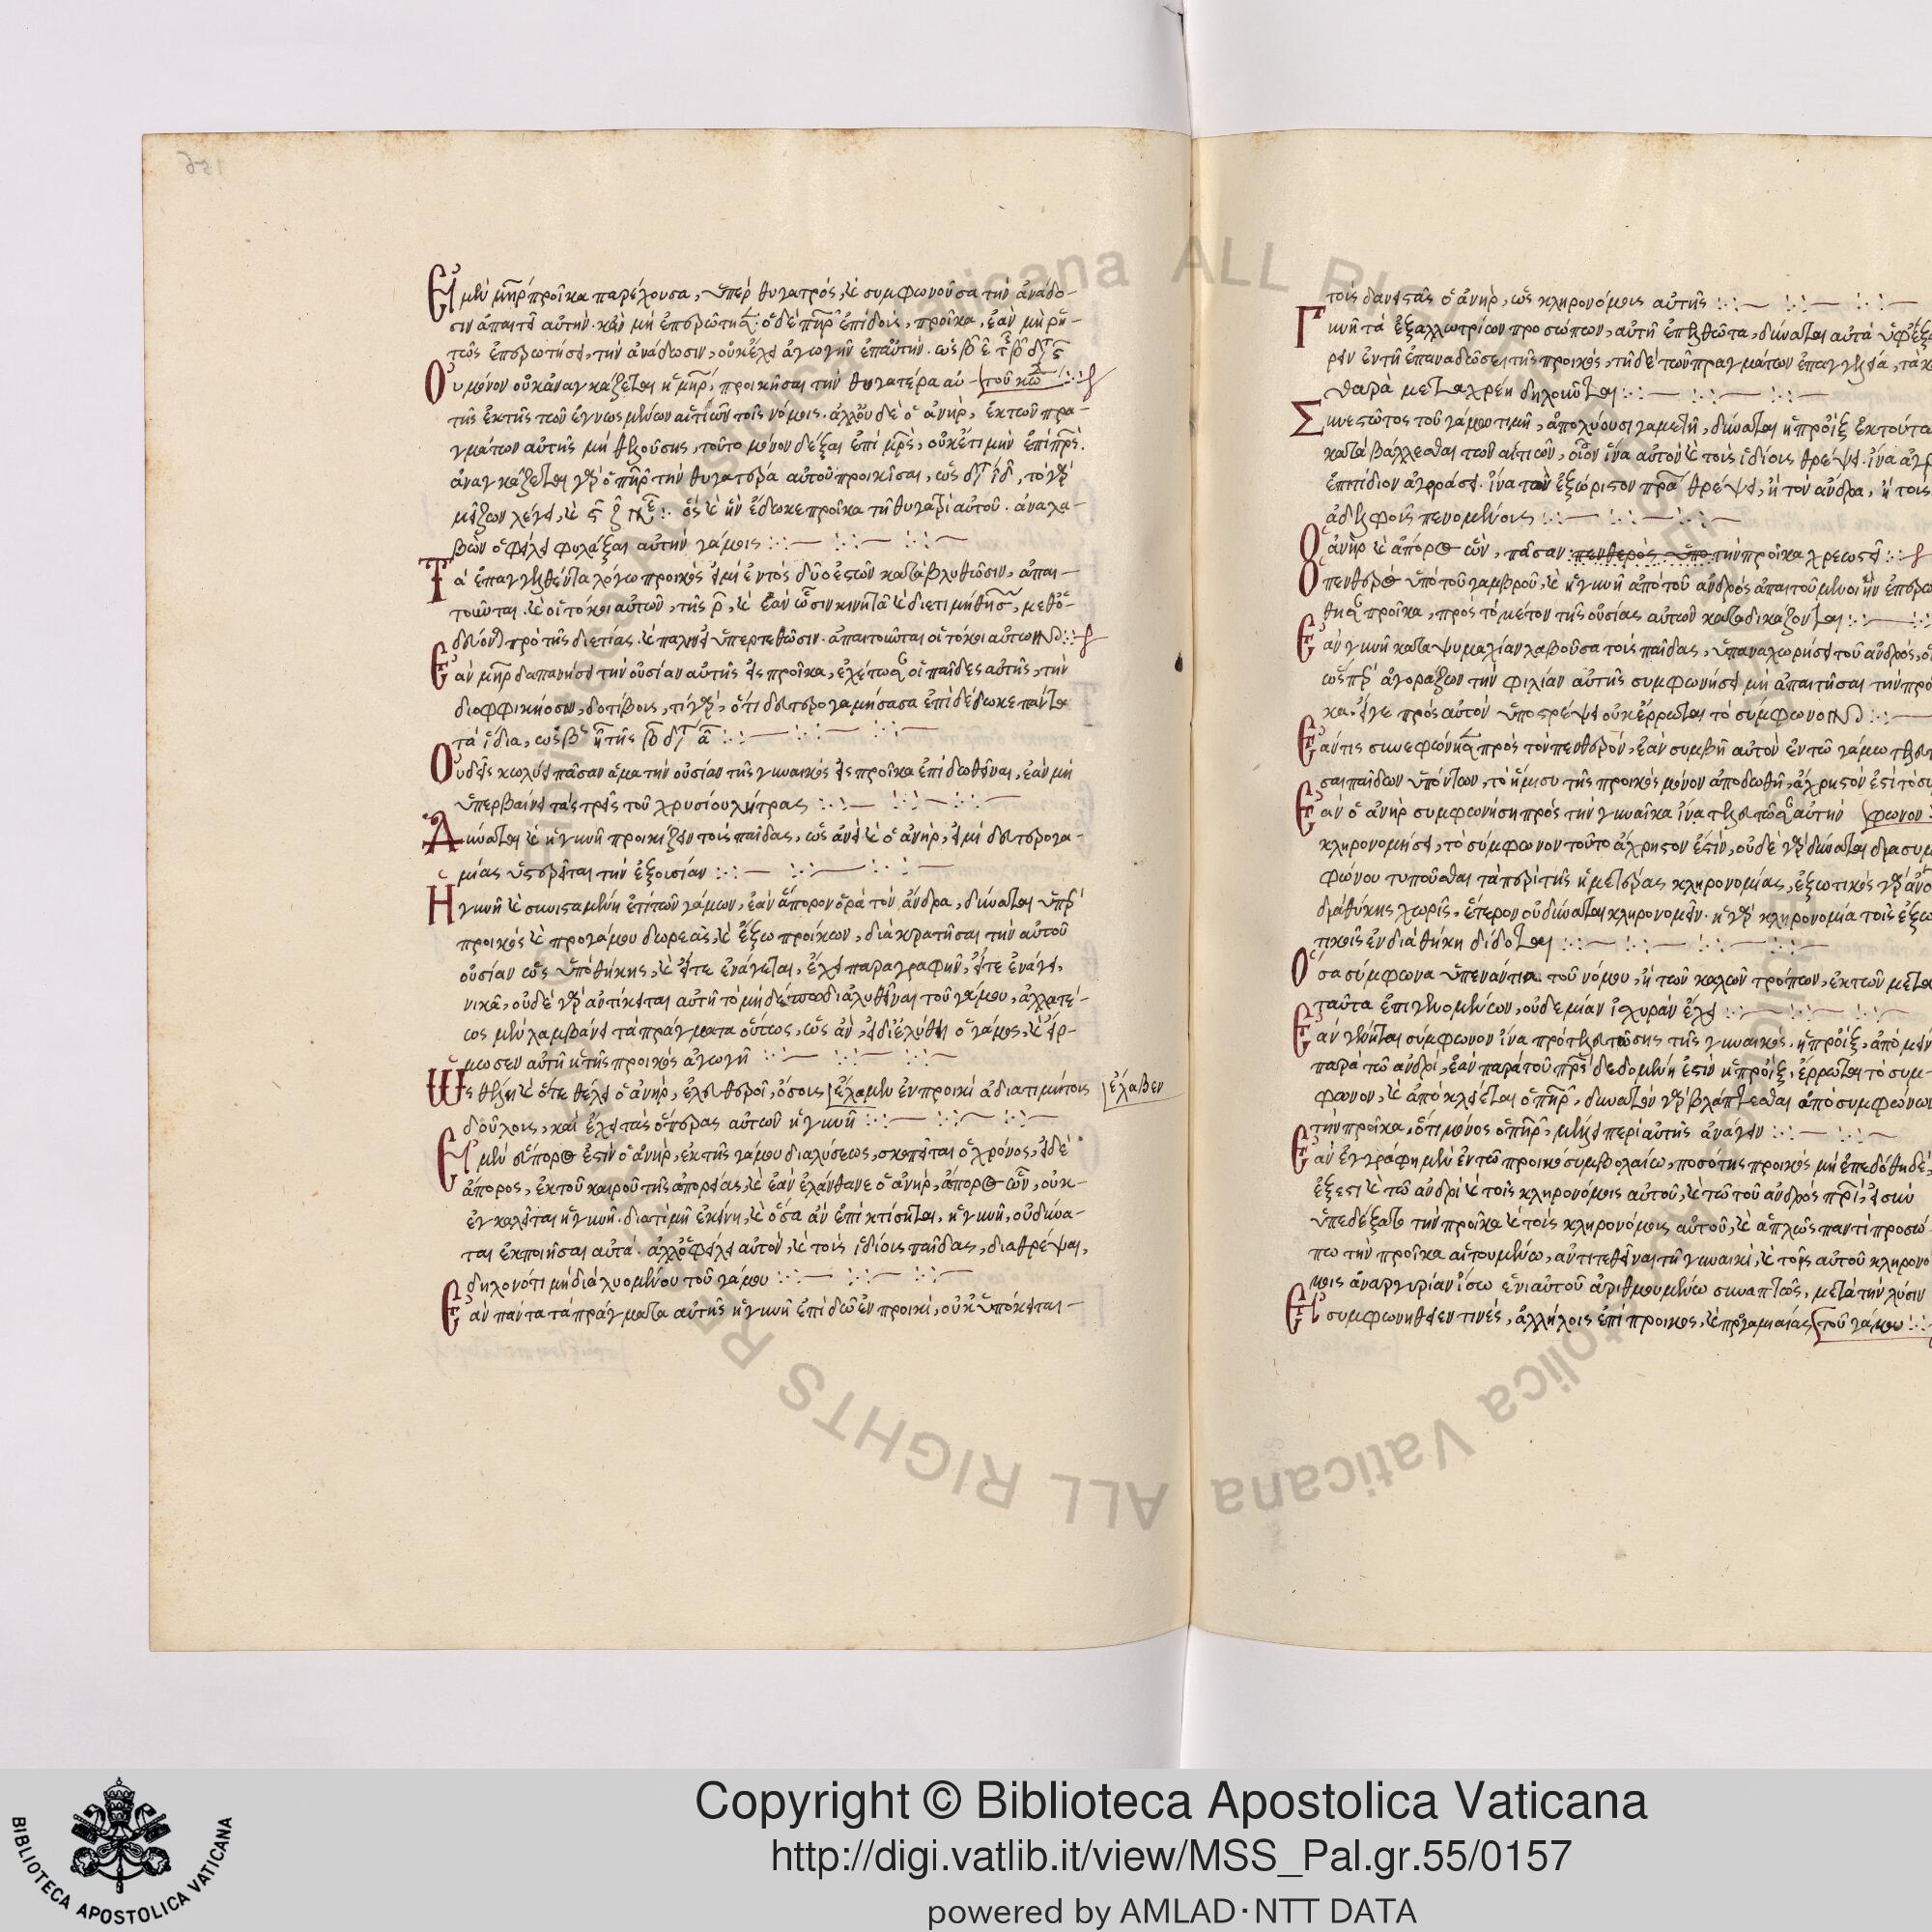 Εἰ μὲν μηρ προῖκα παρέχουσα, ὑπὲρ θυγατρός, καὶ συμφωνοῦσα τὴν ἀνάδο-
σιν ἀπαιτεῖ αὐτὴν. κἂν μὴ ἐπερωτη ὁ δὲ πηρ ἐπιδοὺς, προῖκα, ἐὰν μὴ ῥη-
τῶς ἐπερωτήσει, τὴν ἀνάδωσιν, οὐκ ἔχει ἀγωγὴν ἐπ αὐτήν.
Οὐ μόνον οὐκ ἀναγκάζεται ἡ μηρ, προικῆσαι τὴν θυγατέρα αὐ-
τῆς ἐκτὸς τῶν ἐγνωσμένων αἰτιῶν τοῖς νόμοις. ἀλλ οὐδὲ ὁ ἀνὴρ, ἐκ τῶν πρα-
γμάτων αὐτῆς μὴ θελούσης, τοῦτο μόνον δέξαι ἐπὶ μρς, οὐκέτι μὴν ἐπὶ πρς.
ἀναγκάζεται γὰρ ὁ πηρ τὴν θυγατέρα αὐτοῦ προικίσαι,
μείζων λέγει, καὶ ὃς καὶ ἣν ἔδωκε προῖκα τῆ θυγατρὶ αὐτοῦ. ἀναλα-
βὼν ὀφείλει φυλάξαι αὐτὴν γάμοις
Τὰ ἐπαγγελθέντα λόγω προικὸς εἰ μὴ ἐντὸς δύο ἐτῶν καταβληθῶσιν, ἀπαι-
τοῦνται καὶ οἱ τόκοι αὐτῶν,
Ἐὰν μηρ δαπανήσει τὴν οὐσίαν αὐτῆς εἰς προῖκα, ἐχέτωσαν οἱ παῖδες αὐτῆς, τὴν
τὰ ἴδια,
Οὐδεὶς κωλύει πᾶσαν ἅμα τὴν οὐσίαν τῆς γυναικὸς εἰς προῖκα ἐπιδωθῆναι, ἐὰν μὴ
ὑπερβαίνει τὰς τρεῖς τοῦ χρυσίου λήτρας
Δύναται καὶ ἡ γυνὴ προικίζειν τοὺς παῖδας, ὡς ἂν εἰ καὶ ὁ ἀνὴρ, εἰ μὴ δευτερογα-
μίας ὑστερεῖται τὴν ἐξουσίαν
Ἡ γυνὴ καὶ συνισταμένη ἐτι τῶν γάμων, ἐὰν ἄπορον ὁρᾶ τὸν ἄνδρα, δύναται ὑπὲρ
προικὸς καὶ προγάμου δωρεᾶς, καὶ ἔξω προίκων, διακρατῆσαι τὴν αὐτοῦ
οὐσίαν ὡς ὑποθήκης, καὶ εἴτε ἐνάγεται, ἔχει παραγραφὴν, εἴτε ἐνάγει,
νικᾶ, οὐδὲ γὰρ ἀντίκειται αὐτῆ τὸ μηδέπω διαλυθῆναι τοῦ γάμου, ἀλλὰ τέ-
ως μὲν λαμβάνει τὰ πράγματα οὕτως, ὡς ἂν, εἰ διελύθη ὁ γάμος, καὶ ἥρ-
μωσεν αὐτῆ ἡ τῆς προικὸς ἀγωγὴ
Ὡς θέλει καὶ ὅτε θέλει ὁ ἀνὴρ, ἐλευθεροῖ, ὅσους ἐν προικὶ ἀδιατιμήτους ἔλαβεν
δούλους, καὶ ἔχει τὰς αὐτῶν ἡ γυνὴ
Εἰ μὲν εὔπορος ἐστὶν ὁ ἀνὴρ, ἐκ τῆς γάμου διαλύσεως, σκοπεῖται ὁ χρόνος, εἰ δὲ
ἄπορος, ἐκ τοῦ καιροῦ τῆς ἀπορίας, καὶ ἐὰν ἐλάνθανε ὁ ἀνὴρ, ἄπορος ὢν, οὐκ
ἐγκαλεῖται ἡ γυνὴ. διατιμῆ ἐκείνη, καὶ ὅσα ἂν ἐπικτίσηται, ἡ γυνὴ, οὐ δύνα-
ται ἐκποιῆσαι αὐτά. ἀλλ ὀφείλει αὐτὸν, καὶ τοὺς ἰδίους παῖδας, διαθρέψαι,
δηλονότι μὴ διαλυομένου τοῦ γάμου
Ἐὰν πάντα τὰ πράγματα αὐτῆς ἡ γυνὴ ἐπιδῶ ἐν προικὶ, οὐχ ὑπόκειται
τοῖς δανεισταῖς ὁ ἀνὴρ, ὡς κληρονόμος αὐτῆς
Γυνὴ τὰ ἐξ ἀλλωτρίων προσώπων, αὐτῆ ἐπελθόντα, δύναται αὐτὰ
ρειν ἐν τῆ ἐπαναδώσει τῆς προικὸς, τῆ δὲ τῶν πραγμάτων ἐπαγγελία,
θαρὰ μετὰ χρέη δηλοῦται
Συνεστῶτος τοῦ γάμου τιμῆ, ἀπολύουσι γαμετὴ, δύναται ἡ προὶξ ἐκ τούτων
καταβάλλεσθαι τῶν αἰτιῶν, οἷον ἵνα αὐτὸν καὶ τοὺς ἰδίους θρέψει. ἵνα
ἐπιτίδιον ἀγοράσει. ἵνα τὸν ἐξώριστον πρα θρέψει, ἢ τὸν ἄνδρα, ἢ τοὺς
ἀδελφοὺς πενομένους
Ὁ ἀνὴρ καὶ ἄπορος ὢν, πᾶσαν πενθερὸς ὑπο τὴν προῖκα χρεωστεῖ
Ὁ πενθερὸς ὑπὸ τοῦ γαμβροῦ, καὶ ἡ γυνὴ ἀπὸ τοῦ ἀνδρὸς ἀπαιτούμενοι ἣν
προῖκα, πρὸς τὸ μέτον τῆς οὐσίας αὐτῶν καταδικάζονται
Ἐὰν γυνὴ κατα ψυμαλίαν λαβοῦσα τοὺς παῖδας, ὑπαναχωρήσει τοῦ ἀνδρὸς,
ὥσπερ ἀγοράζων τὴν φιλίαν αὐτῆς συμφωνήσει μὴ ἀπαιτῆσαι τὴν προῖ
κα. εἴγε πρὸς αὐτὸν ὑποστρέψει οὐκ ἔρρωται τὸ σύμφωνον
Ἐάν τις συνεφώνησε πρὸς τὸν πενθερὸν, ἐὰν συμβῆ αὐτὸν ἐν τῶ γάμω
σαι παίδων ὑπόντων, τὸ ἥμισυ τῆς προικὸς μόνον ἀποδωθῆ, ἄχρηστον ἐστὶ τὸ σύμ
Ἐὰν ὁ ἀνὴρ συμφωνήση πρὸς τὴν γυναῖκα ἵνα αὐτὴν φωνον
κληρονομήσει, τὸ σύμφωνον τοῦτο ἄχρηστον ἐστὶν, οὐδὲ γὰρ δύναται διὰ συμ
φώνου τυποῦσθαι τὰ περὶ τῆς ἡμετέρας κληρονομίας, ἐξωτικὸς γὰρ
διαθήκης χωρὶς, ἕτερον οὐ δύναται κληρονομεῖν. ἡ γὰρ κληρονομία τοῖς ἐξω
τικοῖς ἐν διαθήκη δίδοται
Ὅσα σύμφωνα ὑπεναντία τοῦ νόμου, ἢ τῶν καλῶν τρόπων, ἐκ τῶν μετὰ
ταῦτα ἐπιγενομένων, οὐδεμίαν ἰσχυρὰν ἔχει
Ἐὰν γένηται σύμφωνον ἵνα προτελευτώσης τῆς γυναικὸς, ἡ προὶξ, ἀπομένη
παρὰ τῶ ἀνδρὶ, ἐὰν παρὰ τοῦ πρς δεδομένη ἐστὶν ἡ προὶξ, ἔρρωται τὸ σύμ-
φωνον, καὶ ἀποκλείεται ὁ πηρ, δυνατὸν γὰρ βλάπτεσθαι ἀπὸ συμφώνων
τὴν προῖκα, ὅτι μόνος ὁ πηρ, μέλλει περὶ αὐτῆς ἀνάγειν
Ἐὰν ἐγγράφη μὲν ἐν τῶ προικοσυμβολαίω, ποσότης προικὸς μὴ ἐπεδόθη δὲ,
ἔξεστι καὶ τῶ ἀνδρὶ καὶ τοῖς κληρονόμοις αὐτοῦ, καὶ τῶ τοῦ ἀνδρὸς πρι,
ὑπεδέξατο τὴν προῖκα καὶ τοῖς κληρονόμοις αὐτοῦ, καὶ ἁπλῶς παντὶ προσώ
πω τὴν προῖκα αἰτουμένω, ἀντιτεθῆναι τῆ γυναικὶ, καὶ τοῖς αὐτοῦ κληρονό
μοις ἀναργυρίαν ἴσω ἐνιαυτοῦ ἀριθμουμένω συναπτῶς, μετὰ τὴν λύσιν
Εἰ συμφωνηθεῖεν τινὲς, ἀλλήλοις ἐπὶ προικὸς, καὶ προγαμιαίας τοῦ γάμου
Copyright © Biblioteca Apostolica Vaticana
http://digi.vatlib.it/view/MSS_Pal.gr.55/0157
powered by AMLAD·NTT DATA
BIBLIOTECA APOSTOLICA VATICANA